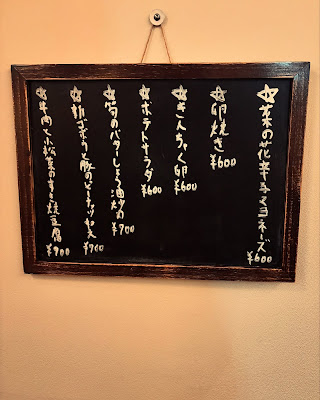 ☆菜の花辛子マヨネーズ ¥600
☆卵焼き ¥600
☆きんちゃく卵 ¥600
☆ポテトサラダ ¥600
☆筍のバターしょう油炒め ¥700
☆新ゴボウと豚のピーナッツ和え ¥700
☆牛肉と小松菜のすき焼豆腐 ¥900